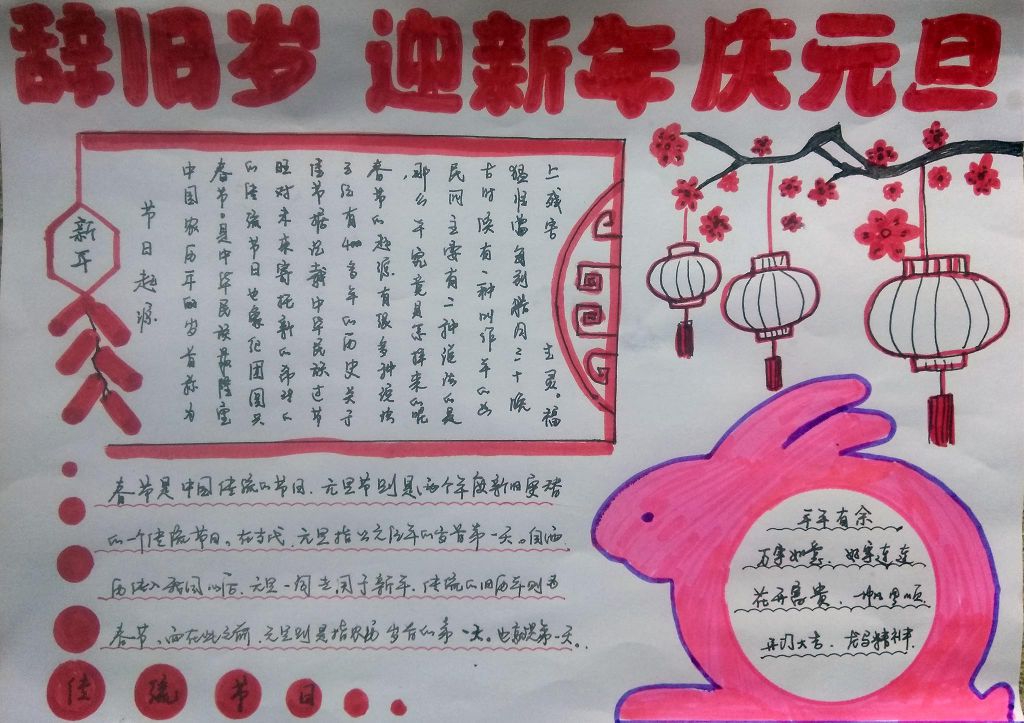 辞旧岁 迎新年 庆元旦
新年
节日起源
中国农历年的岁首称为
春节,是中华民族最隆重
的传统节日也象征团圆兴
旺对未来寄托新的希望的
佳节据说中华民族过节
已经有400多年的历史关于
春节的起源有很多种说法
,那么年究竟是怎样来的呢
民间主要有二种说法的是
古时候有一种叫作年的凶
猛 每到腊月三十晚
上残害 生灵。福
春节是中国传统的节日,元旦节则是两个年度新旧更替
的一个传统节日。在古代,元旦指公元纪年的岁首第一天。自西
历传入我国以后,元旦一词专用于新年,传统的旧历年则为
春节,而在此之前,元旦则是指农历岁首的第一天。也就是第一天。
传统节日
年年有余
万事如意、好事连连
花开富贵、一帆风顺
开门大吉、龙马精神